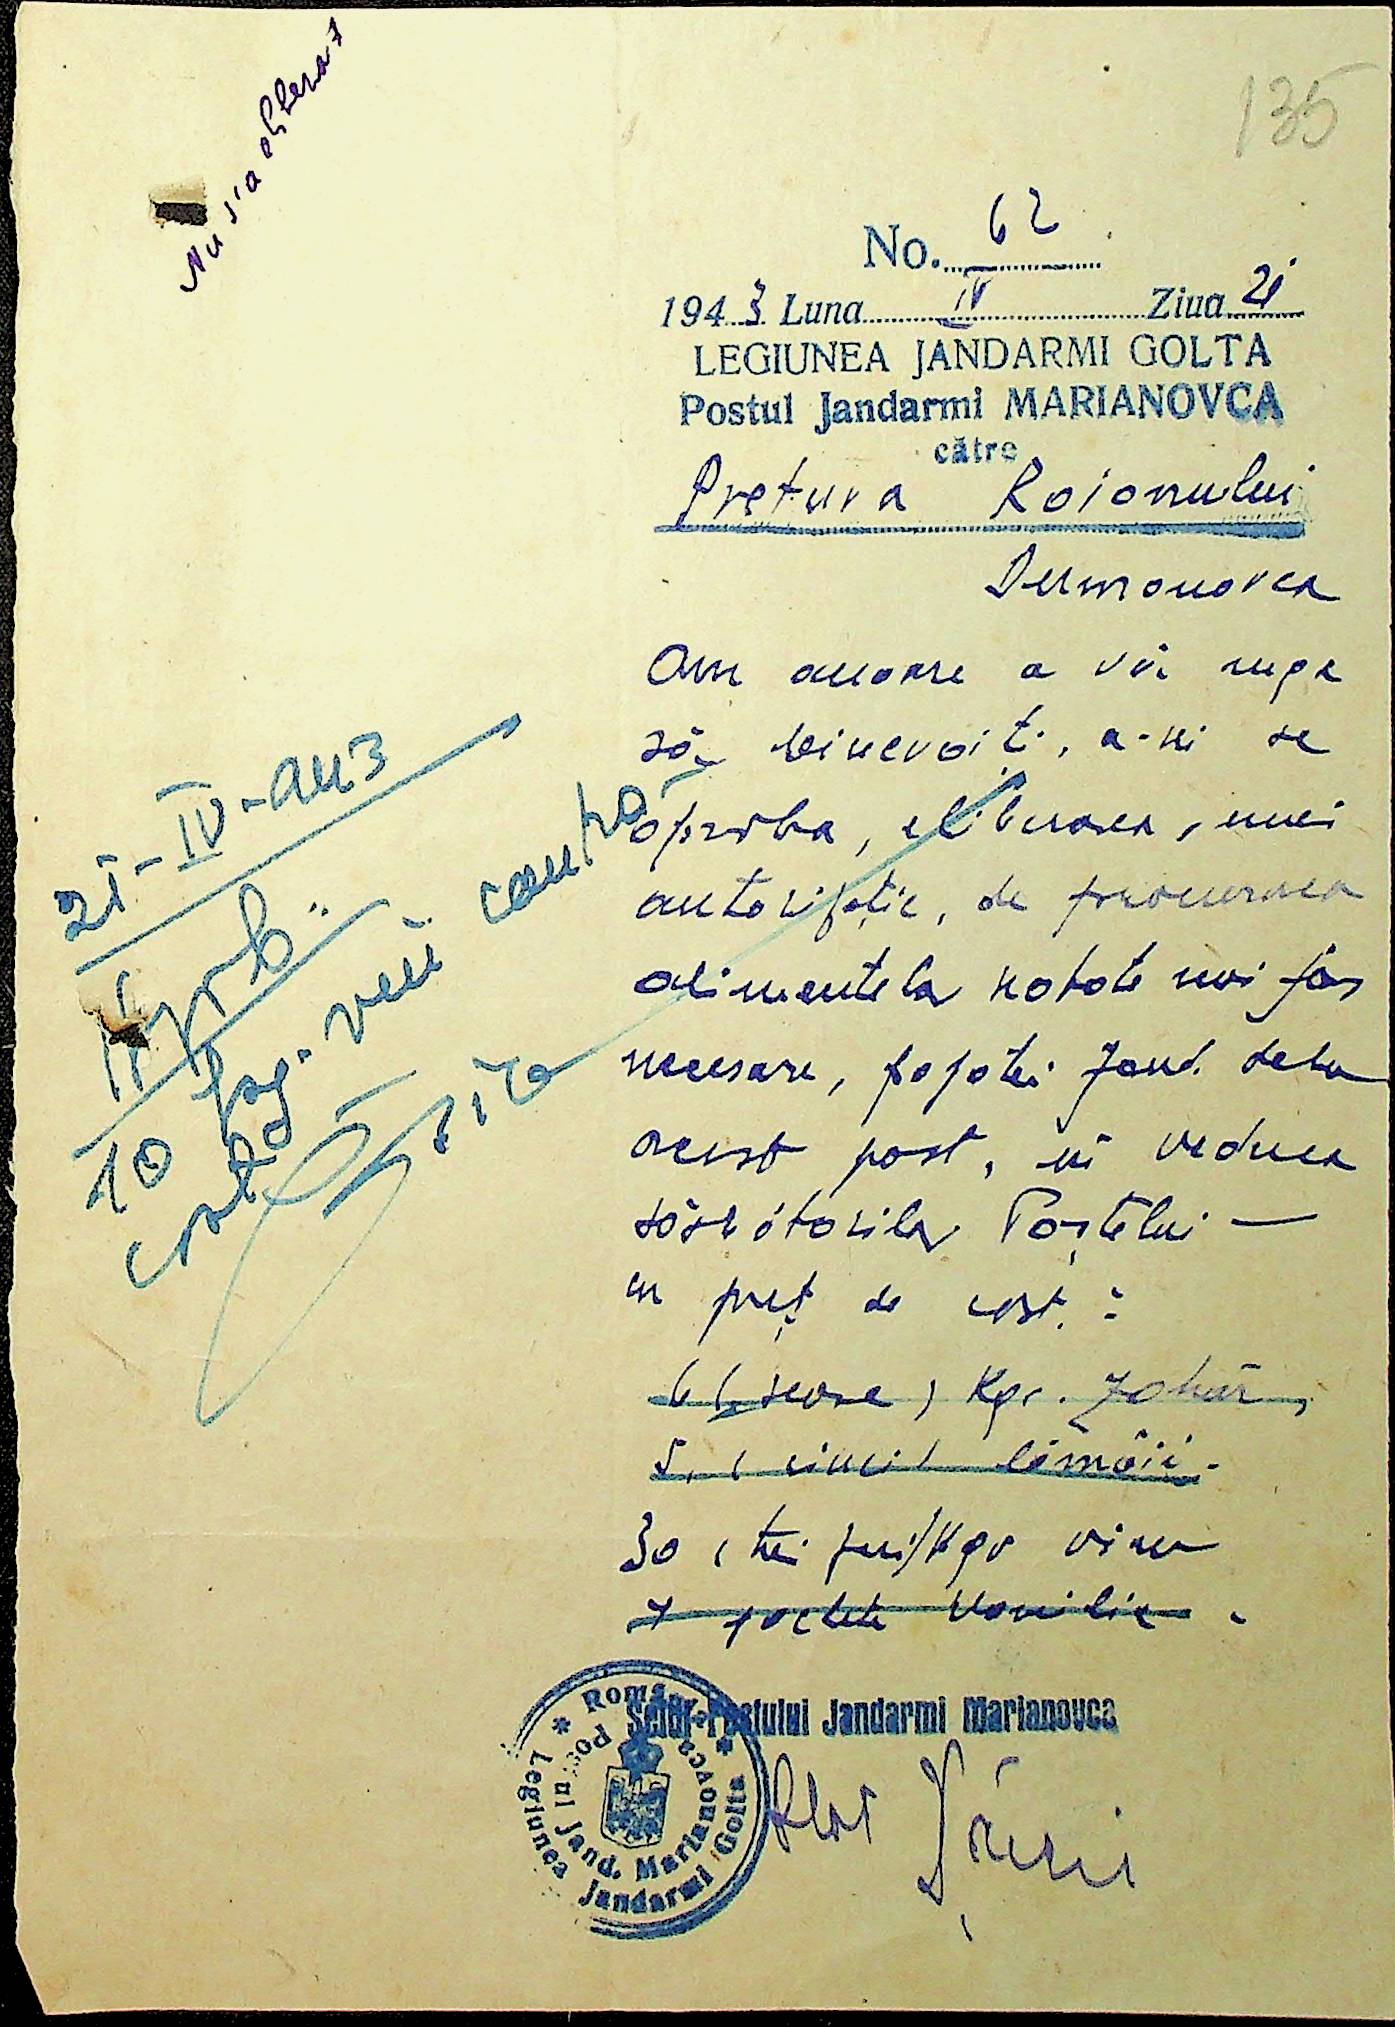 Nu s'a eliberat
135
No. 62
1943 Luna IV Ziua 21
LEGIUNEA JANDARMI GOLTA
Postul Jandarmi MARIANOVCA
către
Pretura Raionului
Dumanovca
Am onoare a vă ruga
să binevoiți, a-ni se
aproba, eliberarea, unei
autorizație, de procurarea
alimentelor notate mai jos
necesare, popotei Jand. dela
acest post, în vederea
sărbătorilor Paștelui —
cu preț de cost :
6 (șease) Kgr. Zahăr,
5, (cinci) lămâii.
30 (trei zeci) Kgr vin
7 pachete Vanilie.
21-IV-943
10 kg. vin
costă
Șeful Postului Jandarmi Marianovca
România
Legiunea Jandarmi Golta
Postul Jand. Marianovca